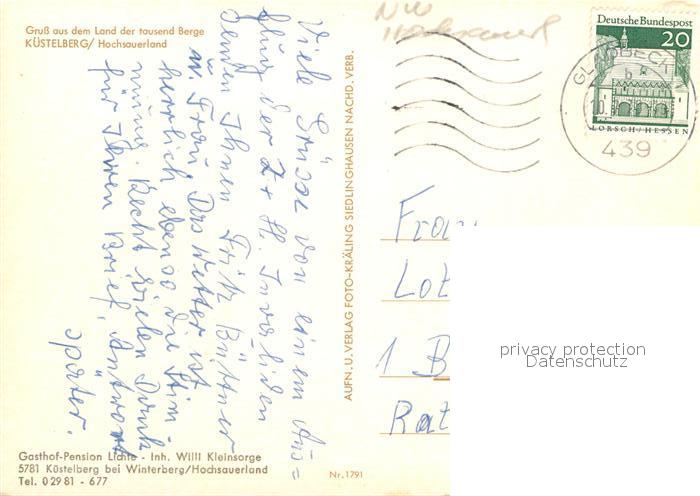 Gruß aus dem Land der tausend Berge
KÜSTELBERG/ Hochsauerland
Viele Grüsse von einem Aus=
flug der Z + H. Invaliden
senden Ihnen Fritz Büttner
u. Frau Das Wetter ist
herrlich ebenso die Stim-
mung. Recht vielen Dank
für Ihren Brief, Antwort
später.
Gasthof-Pension Lichte - Inh. Willi Kleinsorge
5781 Küstelberg bei Winterberg/Hochsauerland
Tel. 0 29 81 - 677
Nr. 1791
AUFN. U. VERLAG FOTO-KRÄLING SIEDLINGHAUSEN NACHD. VERB.
NW
Deutsche Bundespost
20
GLADBECK
b
10.
LORSCH/HESSEN
439
Frau
Lot
1 B
Rat
privacy protection
Datenschutz